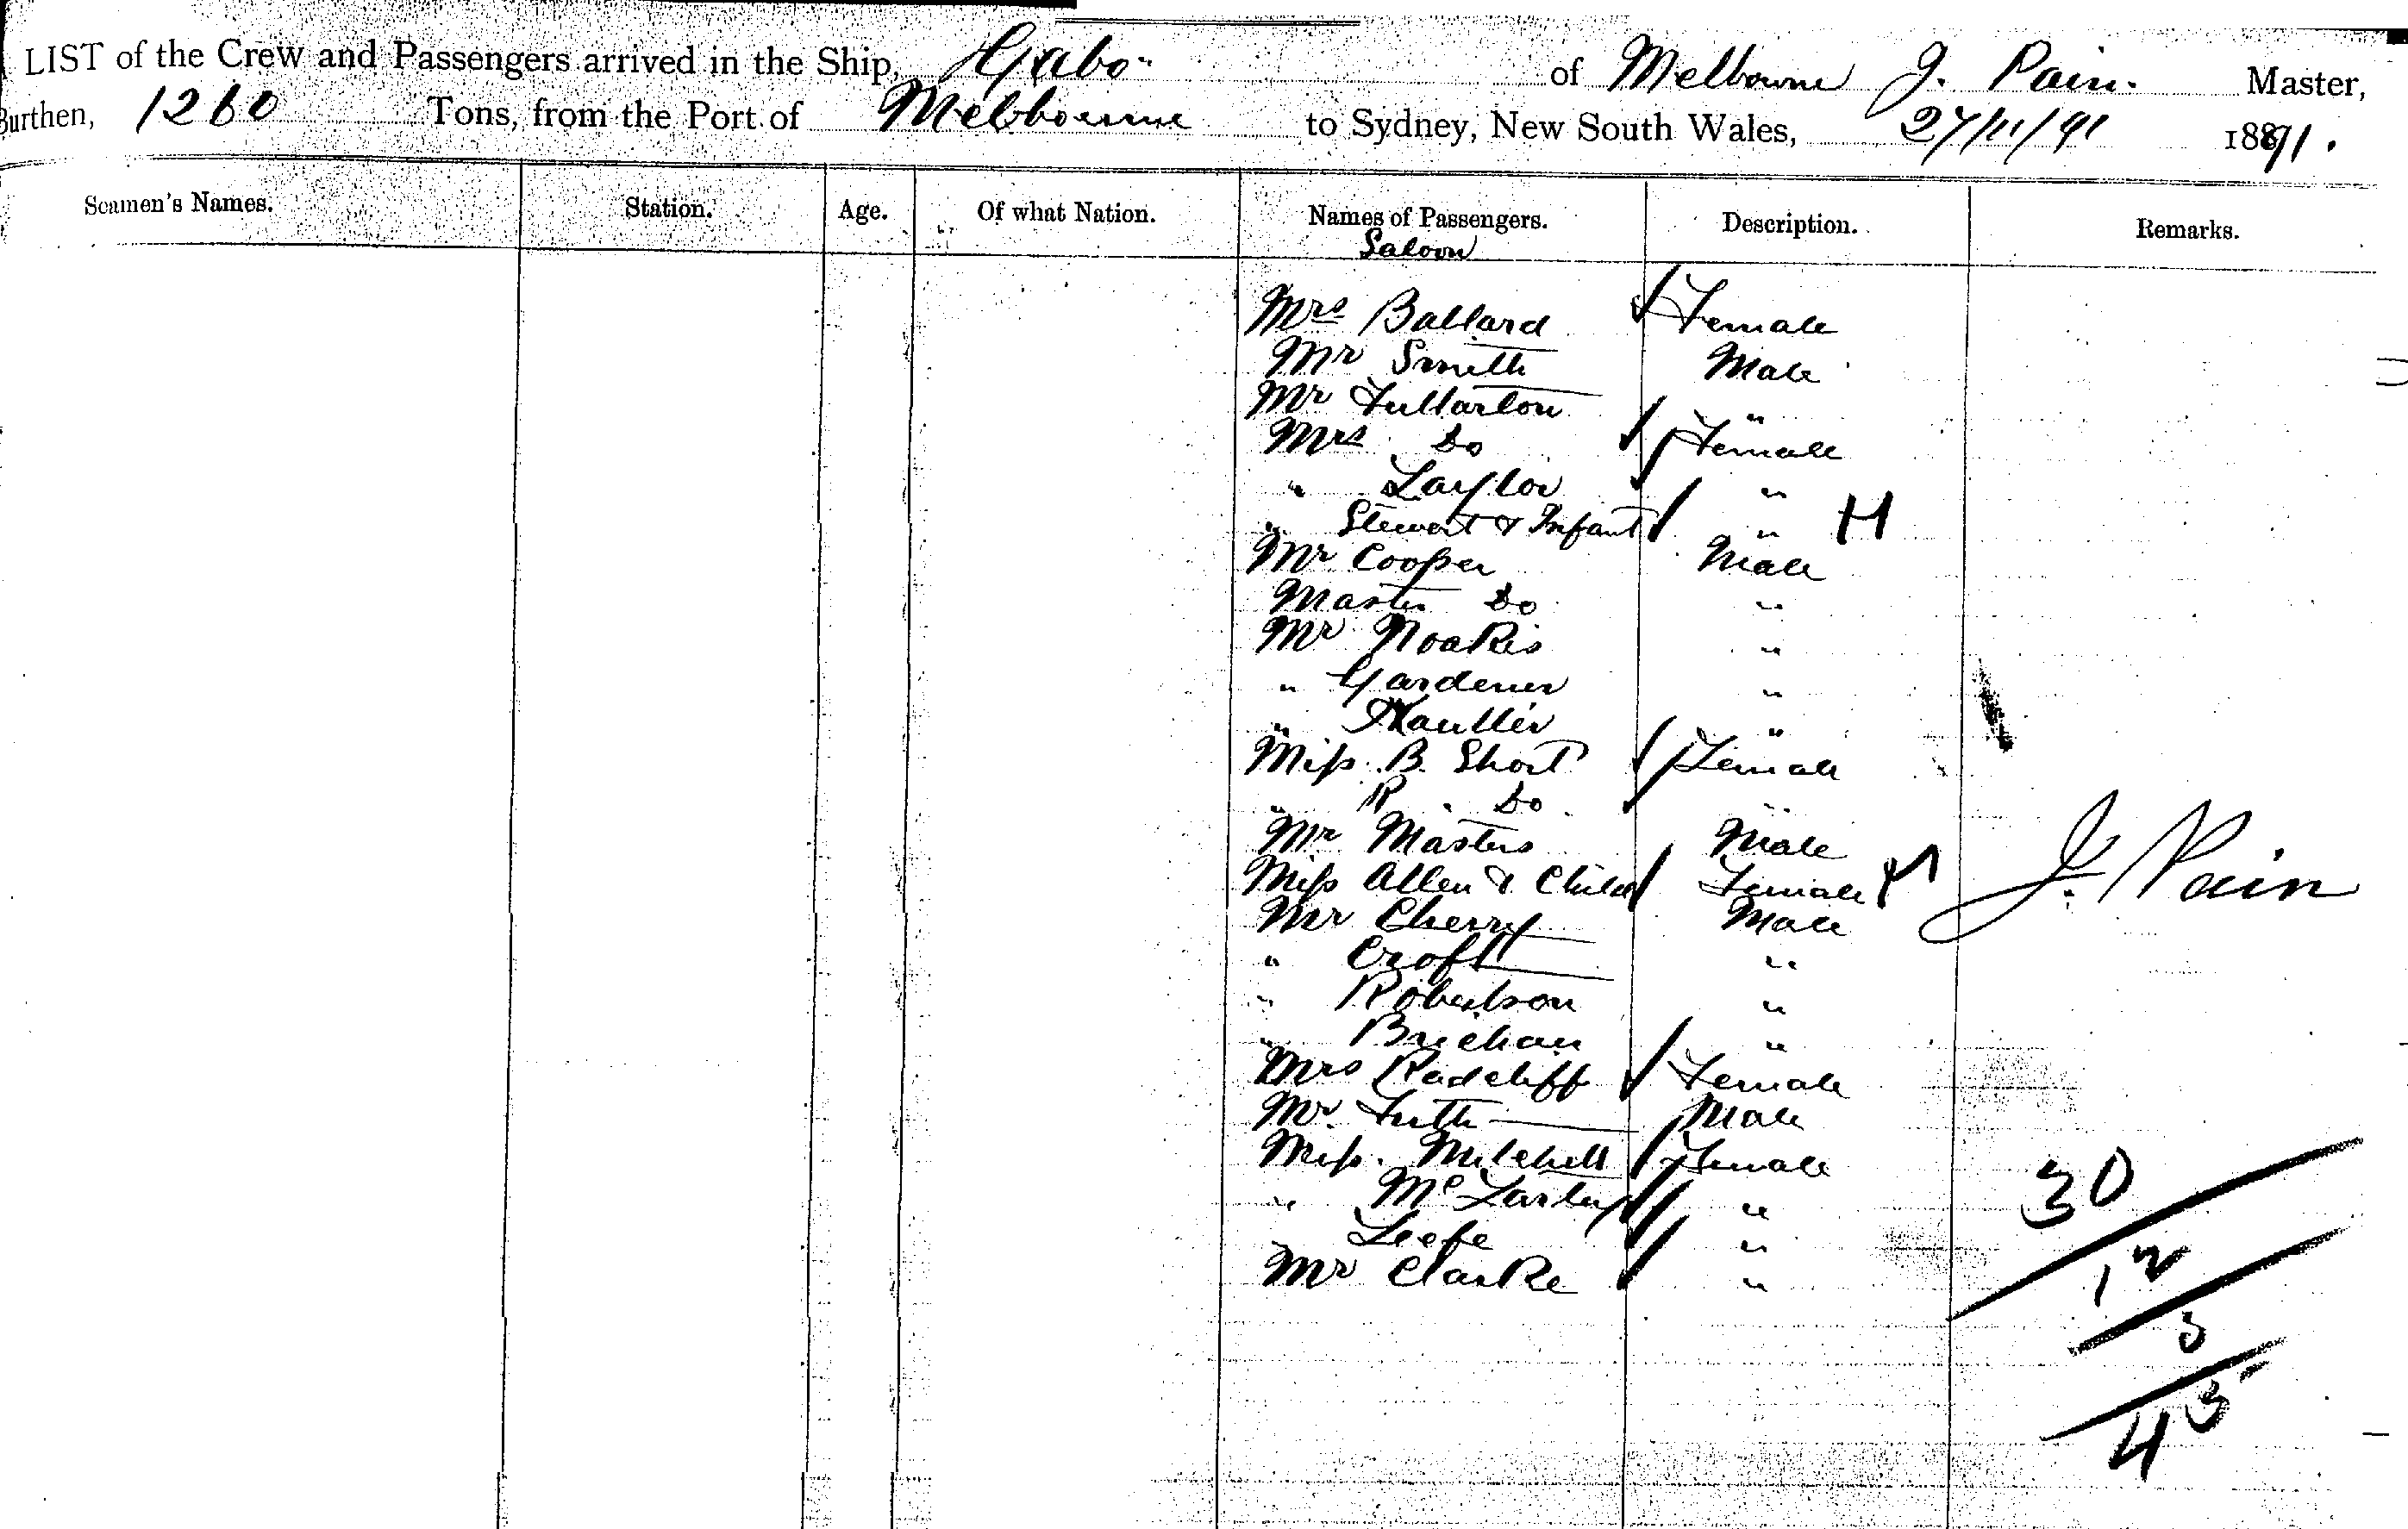 LIST of the Crew and Passengers arrived in the Ship, Gabo of Melbourne J. Pain. Master,
Burthen, 1260 Tons, from the Port of Melbourne to Sydney, New South Wales, 27/11/91 1891.
Seamen's Names. Station. Age. Of what Nation. Names of Passengers. Description. Remarks.
Saloon
Mrs Ballard Female
Mr Smith Male
Mr Fullarton "
Mrs Do Female
" Taylor "
" Stewart & Infant "
Mr Cooper Male
Master Do "
Mr Noakes "
" Gardener "
" "
Miss B. Short Female
" R. Do "
Mr Masters Male
Miss Allen & Child Female
Mr Cherry Male
" Croft "
" Robertson "
" "
Mrs Radcliff Female
Mr. Male
Miss. Mitchell Female
" "
"
Mr Clarke "
J. Pain
30
12
3
45